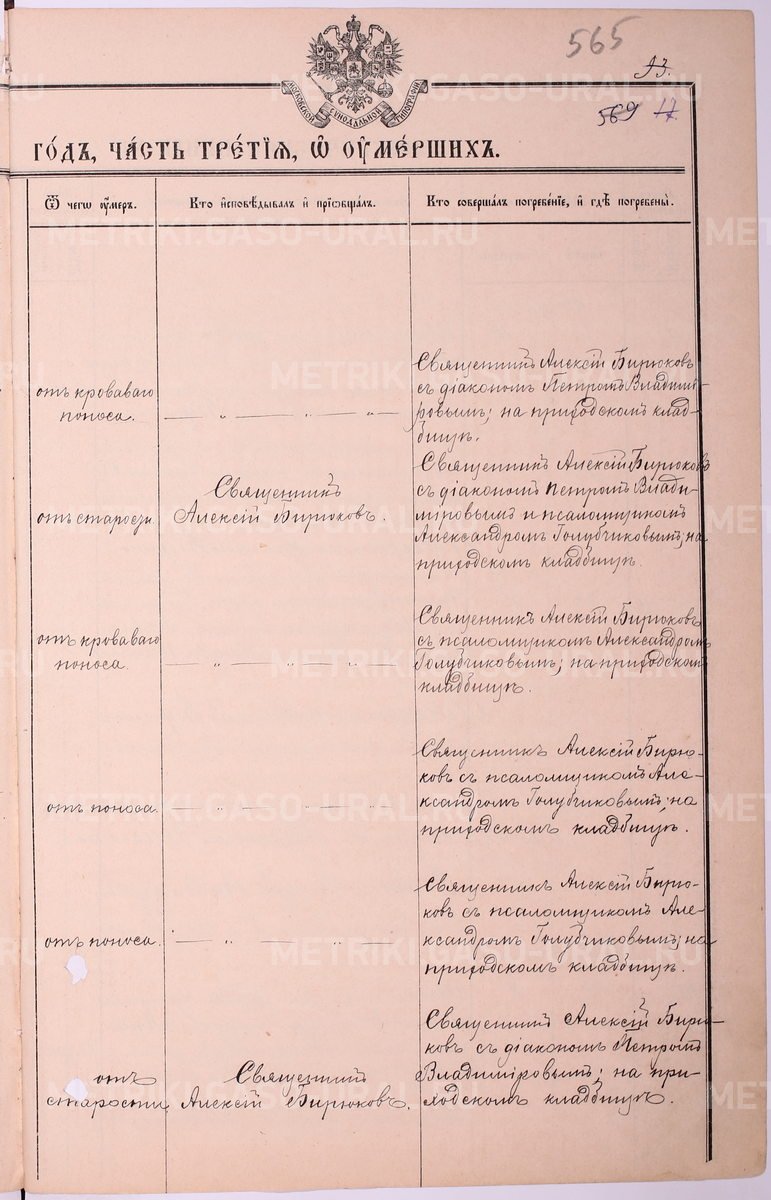 565
13.
569 17
МОСКОВСКОЙ СѴНОДАЛЬНОЙ ТИПОГРАФІИ
ГО́ДЪ, ЧА́СТЬ ТРЕ́ТІѦ, Ѽ ОУ҆МЕ́РШИХЪ.
Ѿ чегѡ оу҆́меръ.
Кто и҆сповѣ́дывалъ и҆ прїѡбща́лъ.
Кто соверша́лъ погребе́нїе, и҆ гдѣ̀ погребены̀.
отъ кроваваго
поноса.
— „ — „ — „ —
Священникъ Алексій Бирюковъ
съ діакономъ Петромъ Владими-
ровымъ; на приходскомъ клад-
бищѣ.
отъ старости.
Священникъ
Алексій Бирюковъ.
Священникъ Алексій Бирюковъ
съ діакономъ Петромъ Влади-
міровымъ и псаломщикомъ
Александромъ Голубчиковымъ; на
приходскомъ кладбищѣ.
отъ кроваваго
поноса.
— „ — „ — „ —
Священникъ Алексій Бирюковъ
съ псаломщикомъ Александромъ
Голубчиковымъ; на приходскомъ
кладбищѣ.
отъ поноса.
— „ — „ —
Священникъ Алексій Бирю-
ковъ съ псаломщикомъ Але-
ксандромъ Голубчиковымъ; на
приходскомъ кладбищѣ.
отъ поноса.
— „ — „ —
Священникъ Алексій Бирю-
ковъ съ псаломщикомъ Але-
ксандромъ Голубчиковымъ; на
приходскомъ кладбищѣ.
отъ
старости
Священникъ
Алексій Бирюковъ.
Священникъ Алексій Бирю-
ковъ съ діакономъ Петромъ
Владиміровымъ; на при-
ходскомъ кладбищѣ.
METRIKI.GASO-URAL.RU